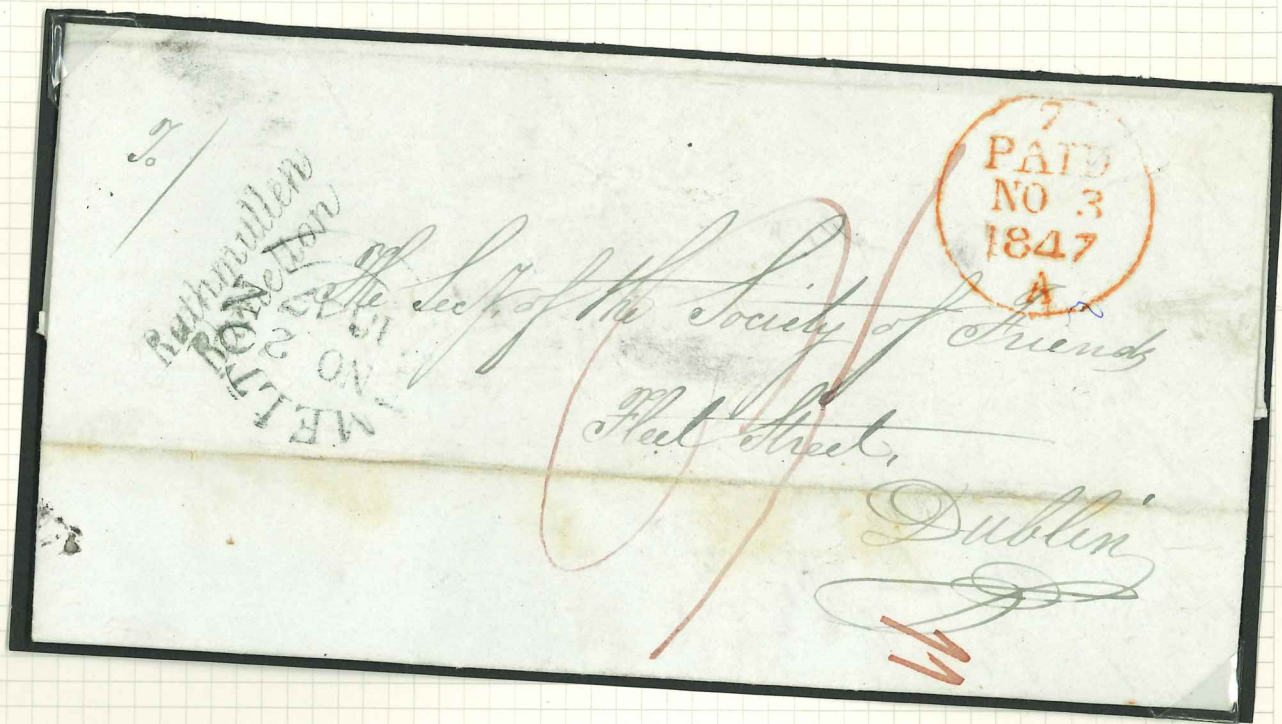 To/
Rathmullen
MELTON
NO 2
7
PAID
NO 3
1847
A
The Secy. of the Society of Friends
Fleet Street,
Dublin